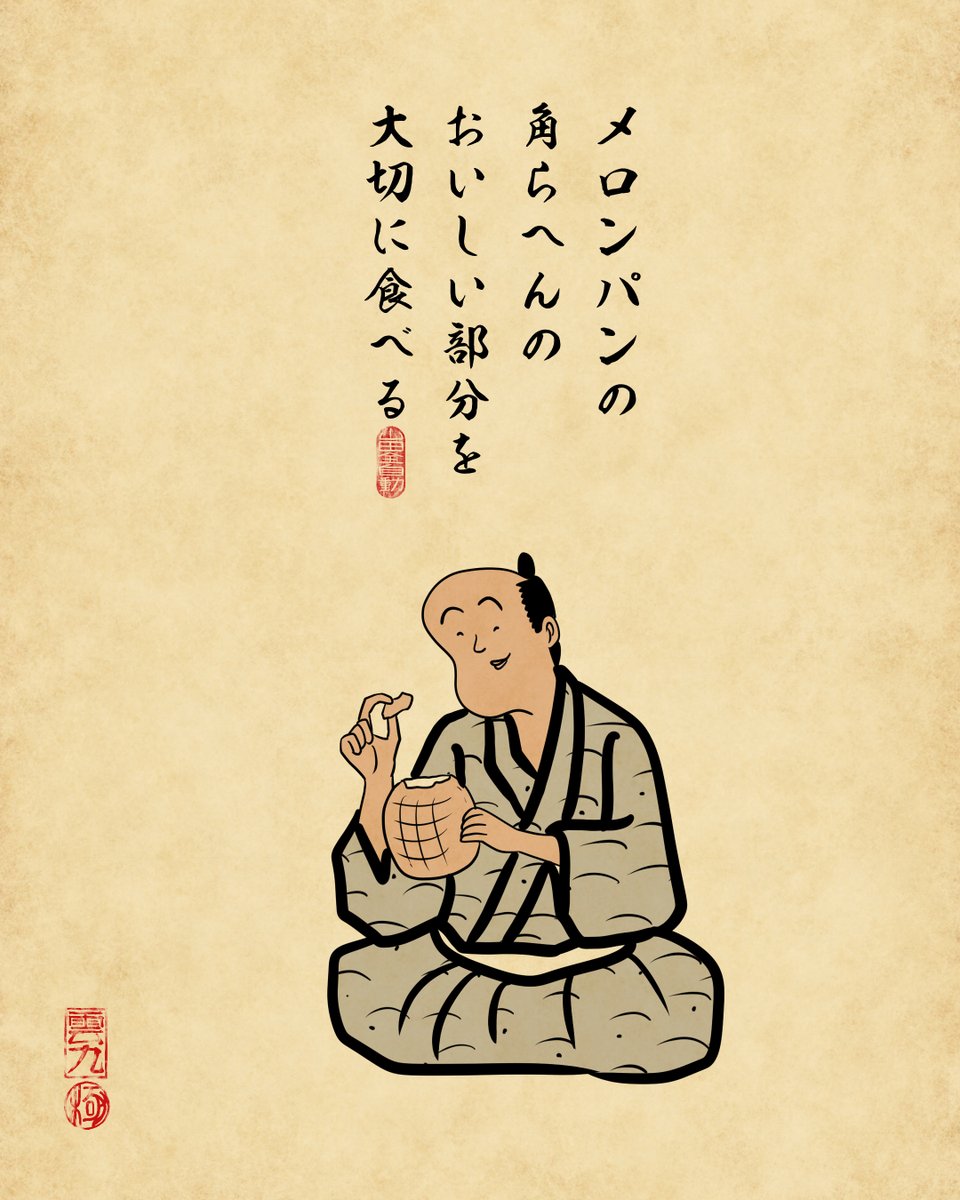 メロンパンの
角らへんの
おいしい部分を
大切に食べる